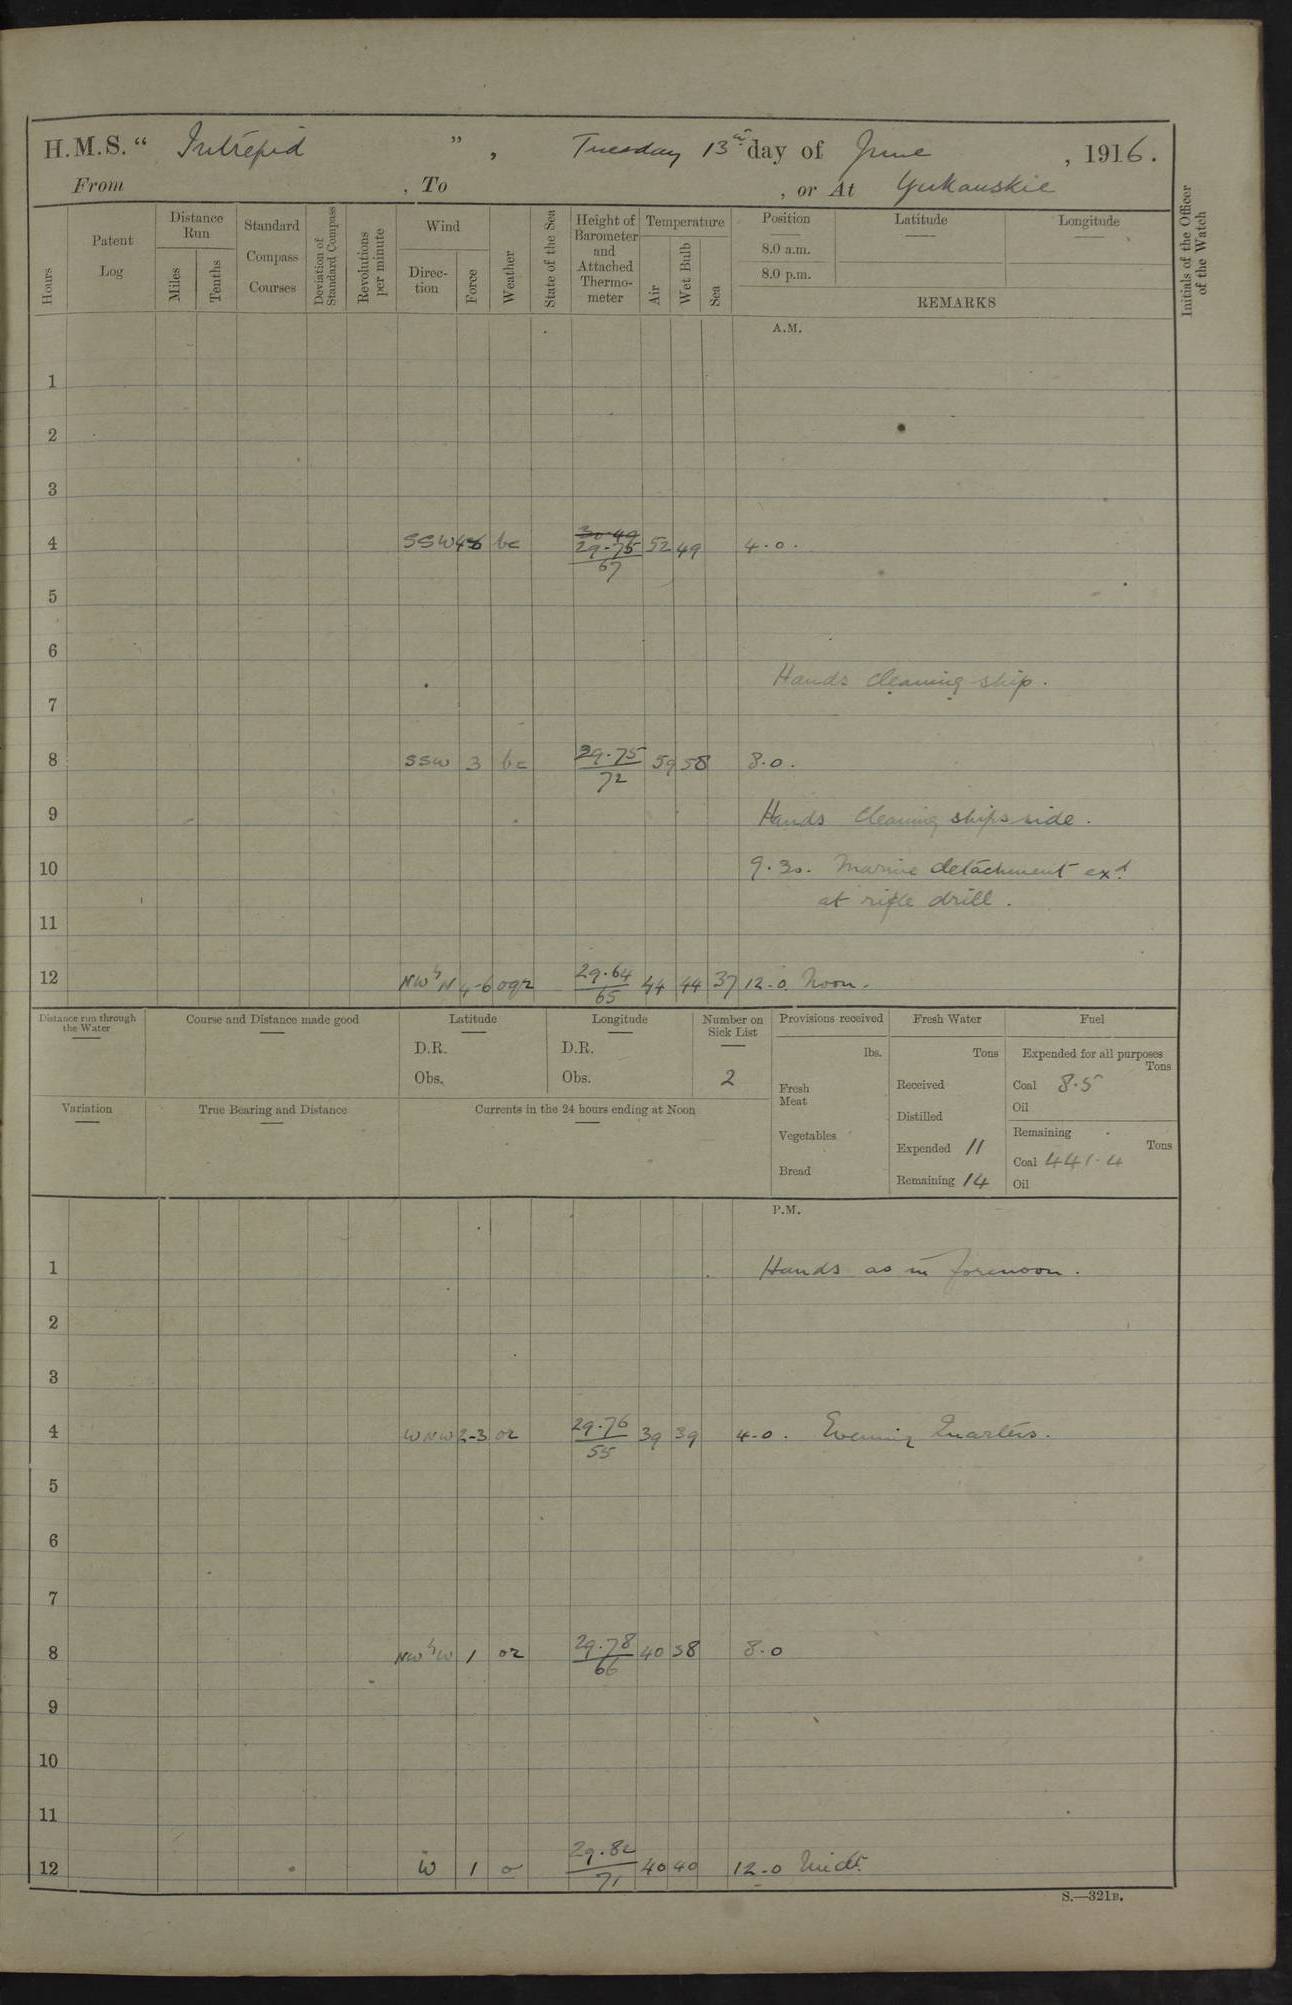 H.M.S. “ Intrepid ” , Tuesday 13th day of June , 1916.
From , To , or At Yukanskie
Hours
Patent Log
Distance Run
Miles
Tenths
Standard Compass Courses
Deviation of Standard Compass
Revolutions per minute
Wind
Direction
Force
Weather
State of the Sea
Height of Barometer and Attached Thermometer
Temperature
Air
Wet Bulb
Sea
Position
8.0 a.m.
8.0 p.m.
Latitude
Longitude
REMARKS
Initials of the Officer of the Watch
A.M.
1
2
3
30.49
4 SSW bc 29.75 52 49 4.0.
67
5
6
Hands cleaning ship.
7
8 SSW 3 bc 29.75 59 58 8.0.
72
9 Hands cleaning ships side.
10 9.30. Marine detachment exd
at rifle drill.
11
12 NWbN 4-6 oqr 29.64 44 44 37 12.0 Noon.
65
Distance run through the Water
Course and Distance made good
Latitude
D.R.
Obs.
Longitude
D.R.
Obs.
Number on Sick List
2
Provisions received
lbs.
Fresh Meat
Vegetables
Bread
Fresh Water
Tons
Received
Distilled
Expended 11
Remaining 14
Fuel
Expended for all purposes
Tons
Coal 8.5
Oil
Remaining
Tons
Coal 441.4
Oil
Variation
True Bearing and Distance
Currents in the 24 hours ending at Noon
P.M.
1 Hands as in forenoon.
2
3
4 WNW 2-3 or 29.76 39 39 4.0. Evening Quarters.
55
5
6
7
8 NWbW 1 or 29.78 40 38 8.0
66
9
10
11
12 W 1 o 29.82 40 40 12.0 Midt.
71
S.—321B.